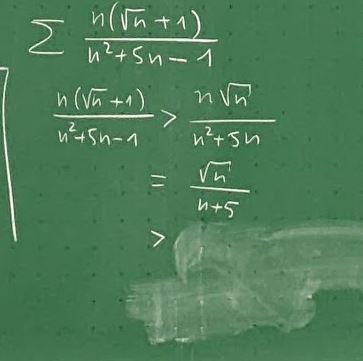 ∑ n(√n + 1) / n²+5n-1
n(√n +1) / n²+5n-1 > n√n / n²+5n
= √n / n+5
>